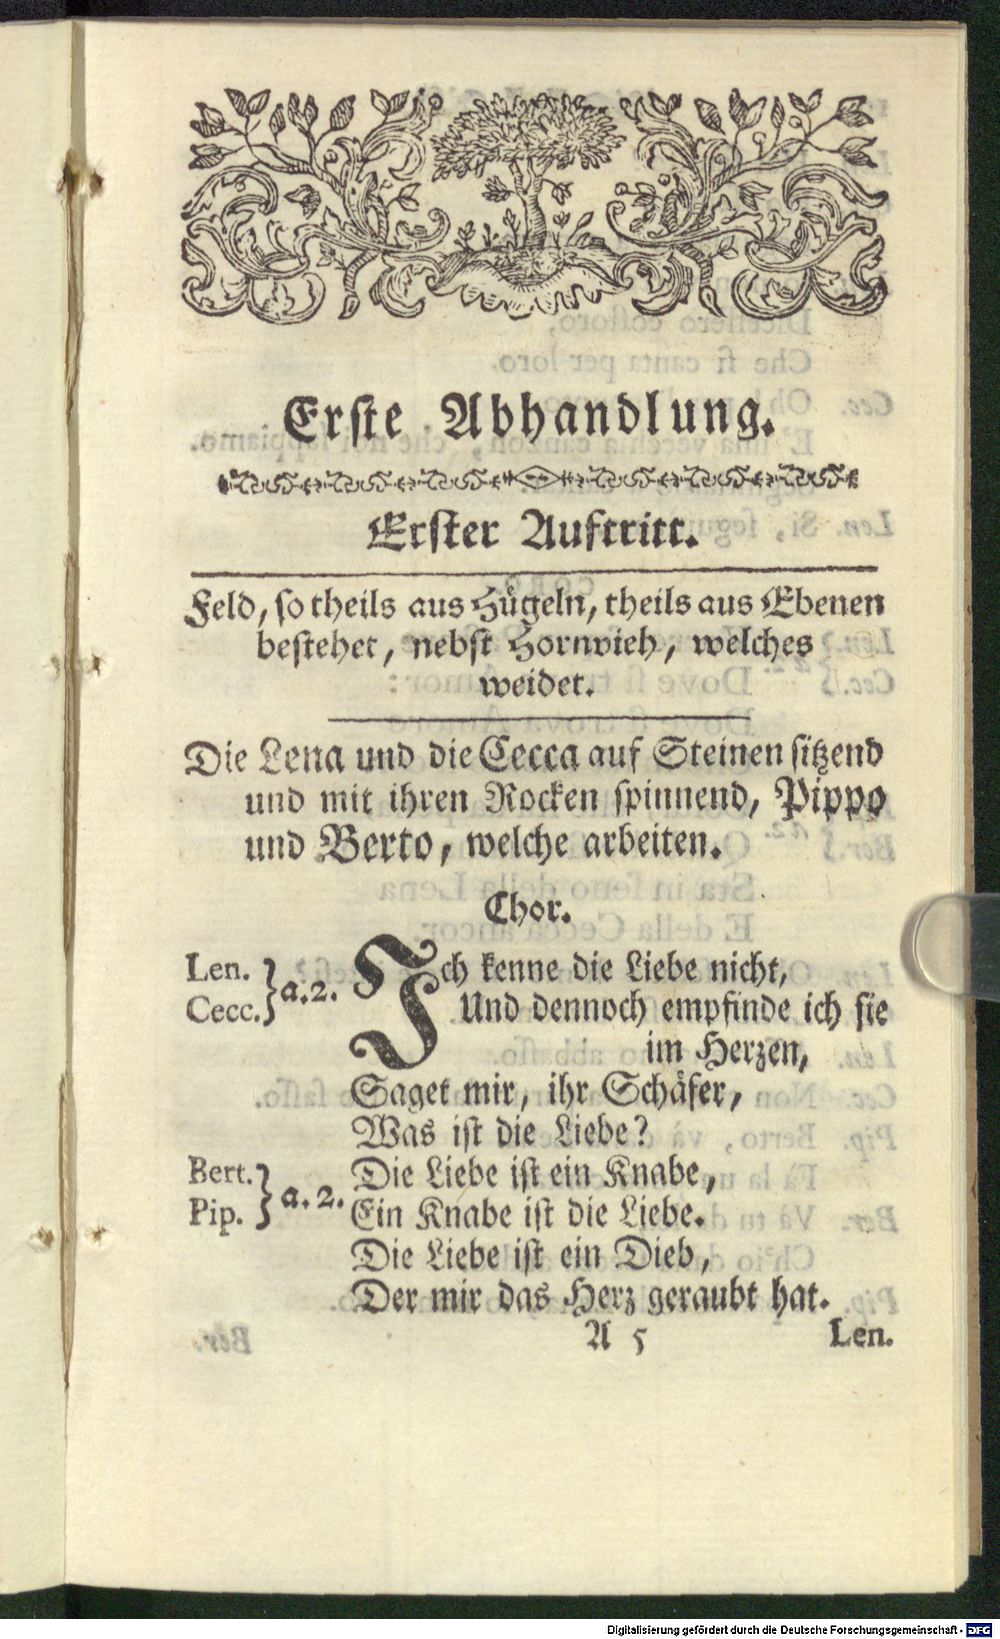 Erste Abhandlung.
Erster Auftritt.
Feld, so theils aus Hügeln, theils aus Ebenen
bestehet, nebst Hornvieh, welches
weidet.
Die Lena und die Cecca auf Steinen sitzend
und mit ihren Rocken spinnend, Pippo
und Berto, welche arbeiten.
Chor.
Len. } a. 2. Ich kenne die Liebe nicht,
Cecc. } Und dennoch empfinde ich sie
im Herzen,
Saget mir, ihr Schäfer,
Was ist die Liebe?
Bert. } a. 2. Die Liebe ist ein Knabe,
Pip. } Ein Knabe ist die Liebe.
Die Liebe ist ein Dieb,
Der mir das Herz geraubt hat.
A 5 Len.
Digitalisierung gefördert durch die Deutsche Forschungsgemeinschaft - DFG